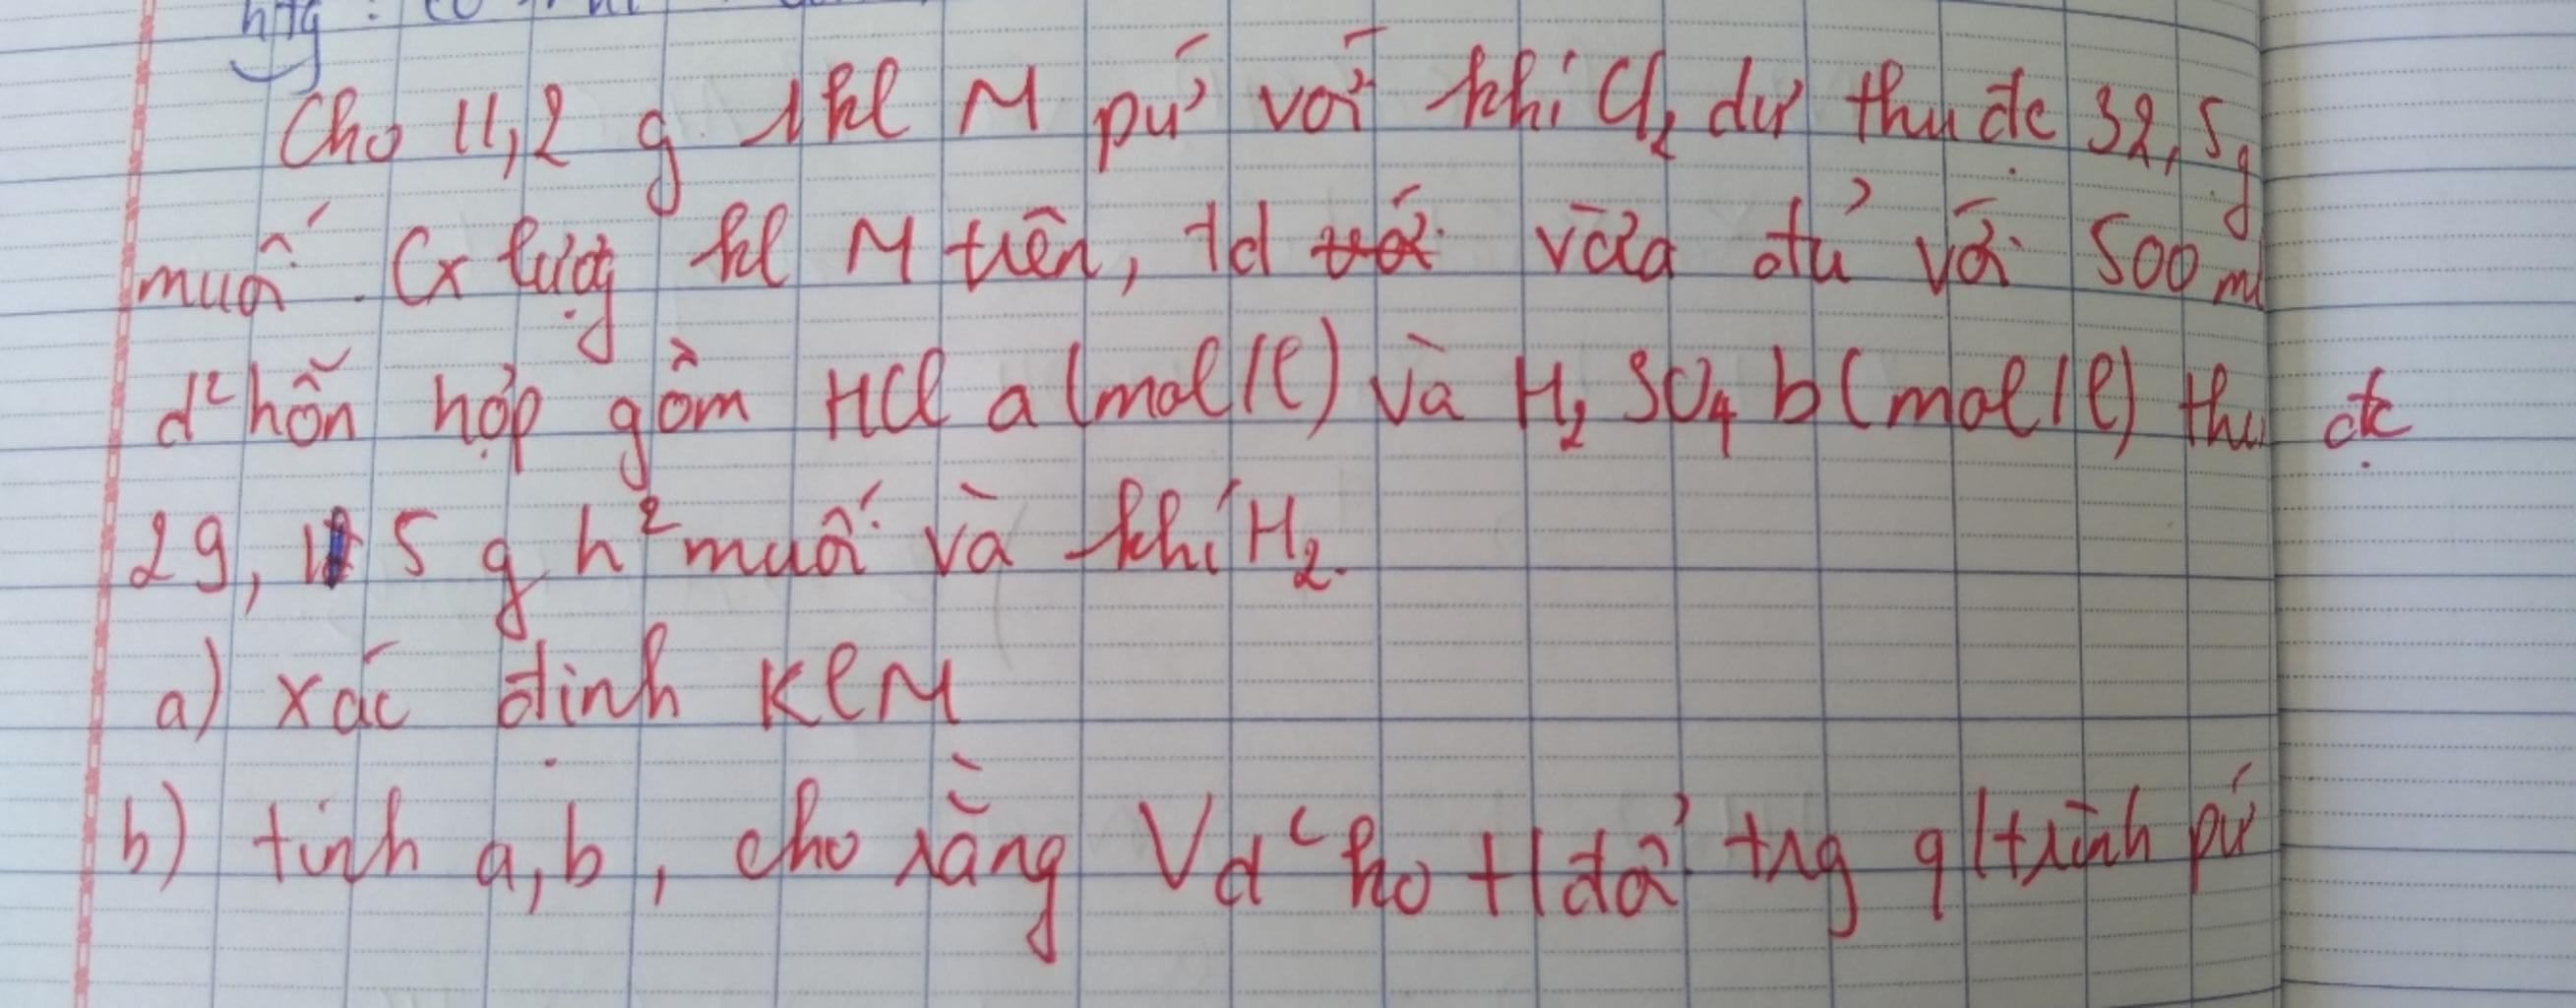 Cho 11,2 g 1 kl M pứ với khí Cl₂ dư thu đc 32,5g
muối. Cx lượg kl M trên, td vừa đủ với 500 ml
d² hỗn hợp gồm HCl a (mol/l) và H₂SO₄ b (mol/l) thu đc
29,15 g h² muối và khí H₂.
a) xác định KLM
b) tính a, b, cho rằng Vd² ko tđổi trg q/trình pứ